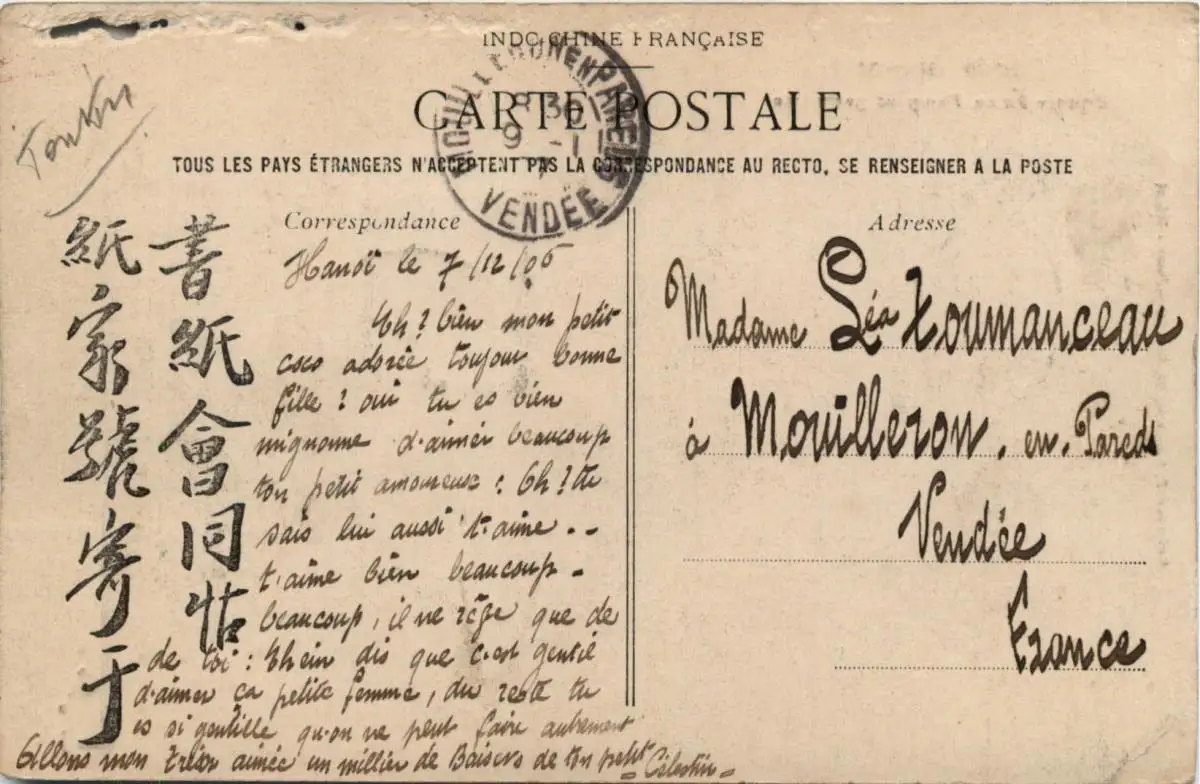 INDO-CHINE FRANÇAISE
CARTE POSTALE
TOUS LES PAYS ÉTRANGERS N'ACCEPTENT PAS LA CORRESPONDANCE AU RECTO, SE RENSEIGNER A LA POSTE
MOUILLERON EN PAREDS
8 30
9 - 1
VENDÉE
Tonkin
Correspondance
書紙會同怗
紙家號寄于
Hanoï le 7/12/06
Eh? bien mon petit
coco adorée toujour bonne
fille? oui tu es bien
mignonne d'aimer beaucoup
ton petit amoureuse: Eh? tu
sais lui aussi t'aime..
t'aime bien beaucoup -
beaucoup, il ne rêve que de
de toi: Ehein dis que c'est gentil
d'aimer ça petite femme, du reste tu
es si gentille qu'on ne peut faire autrement
Allons mon aimée un millier de Baisers de ton petit
- Célestin -
Adresse
Madame Léa Toumanceau
à Mouilleron. en. Pareds
Vendée
France